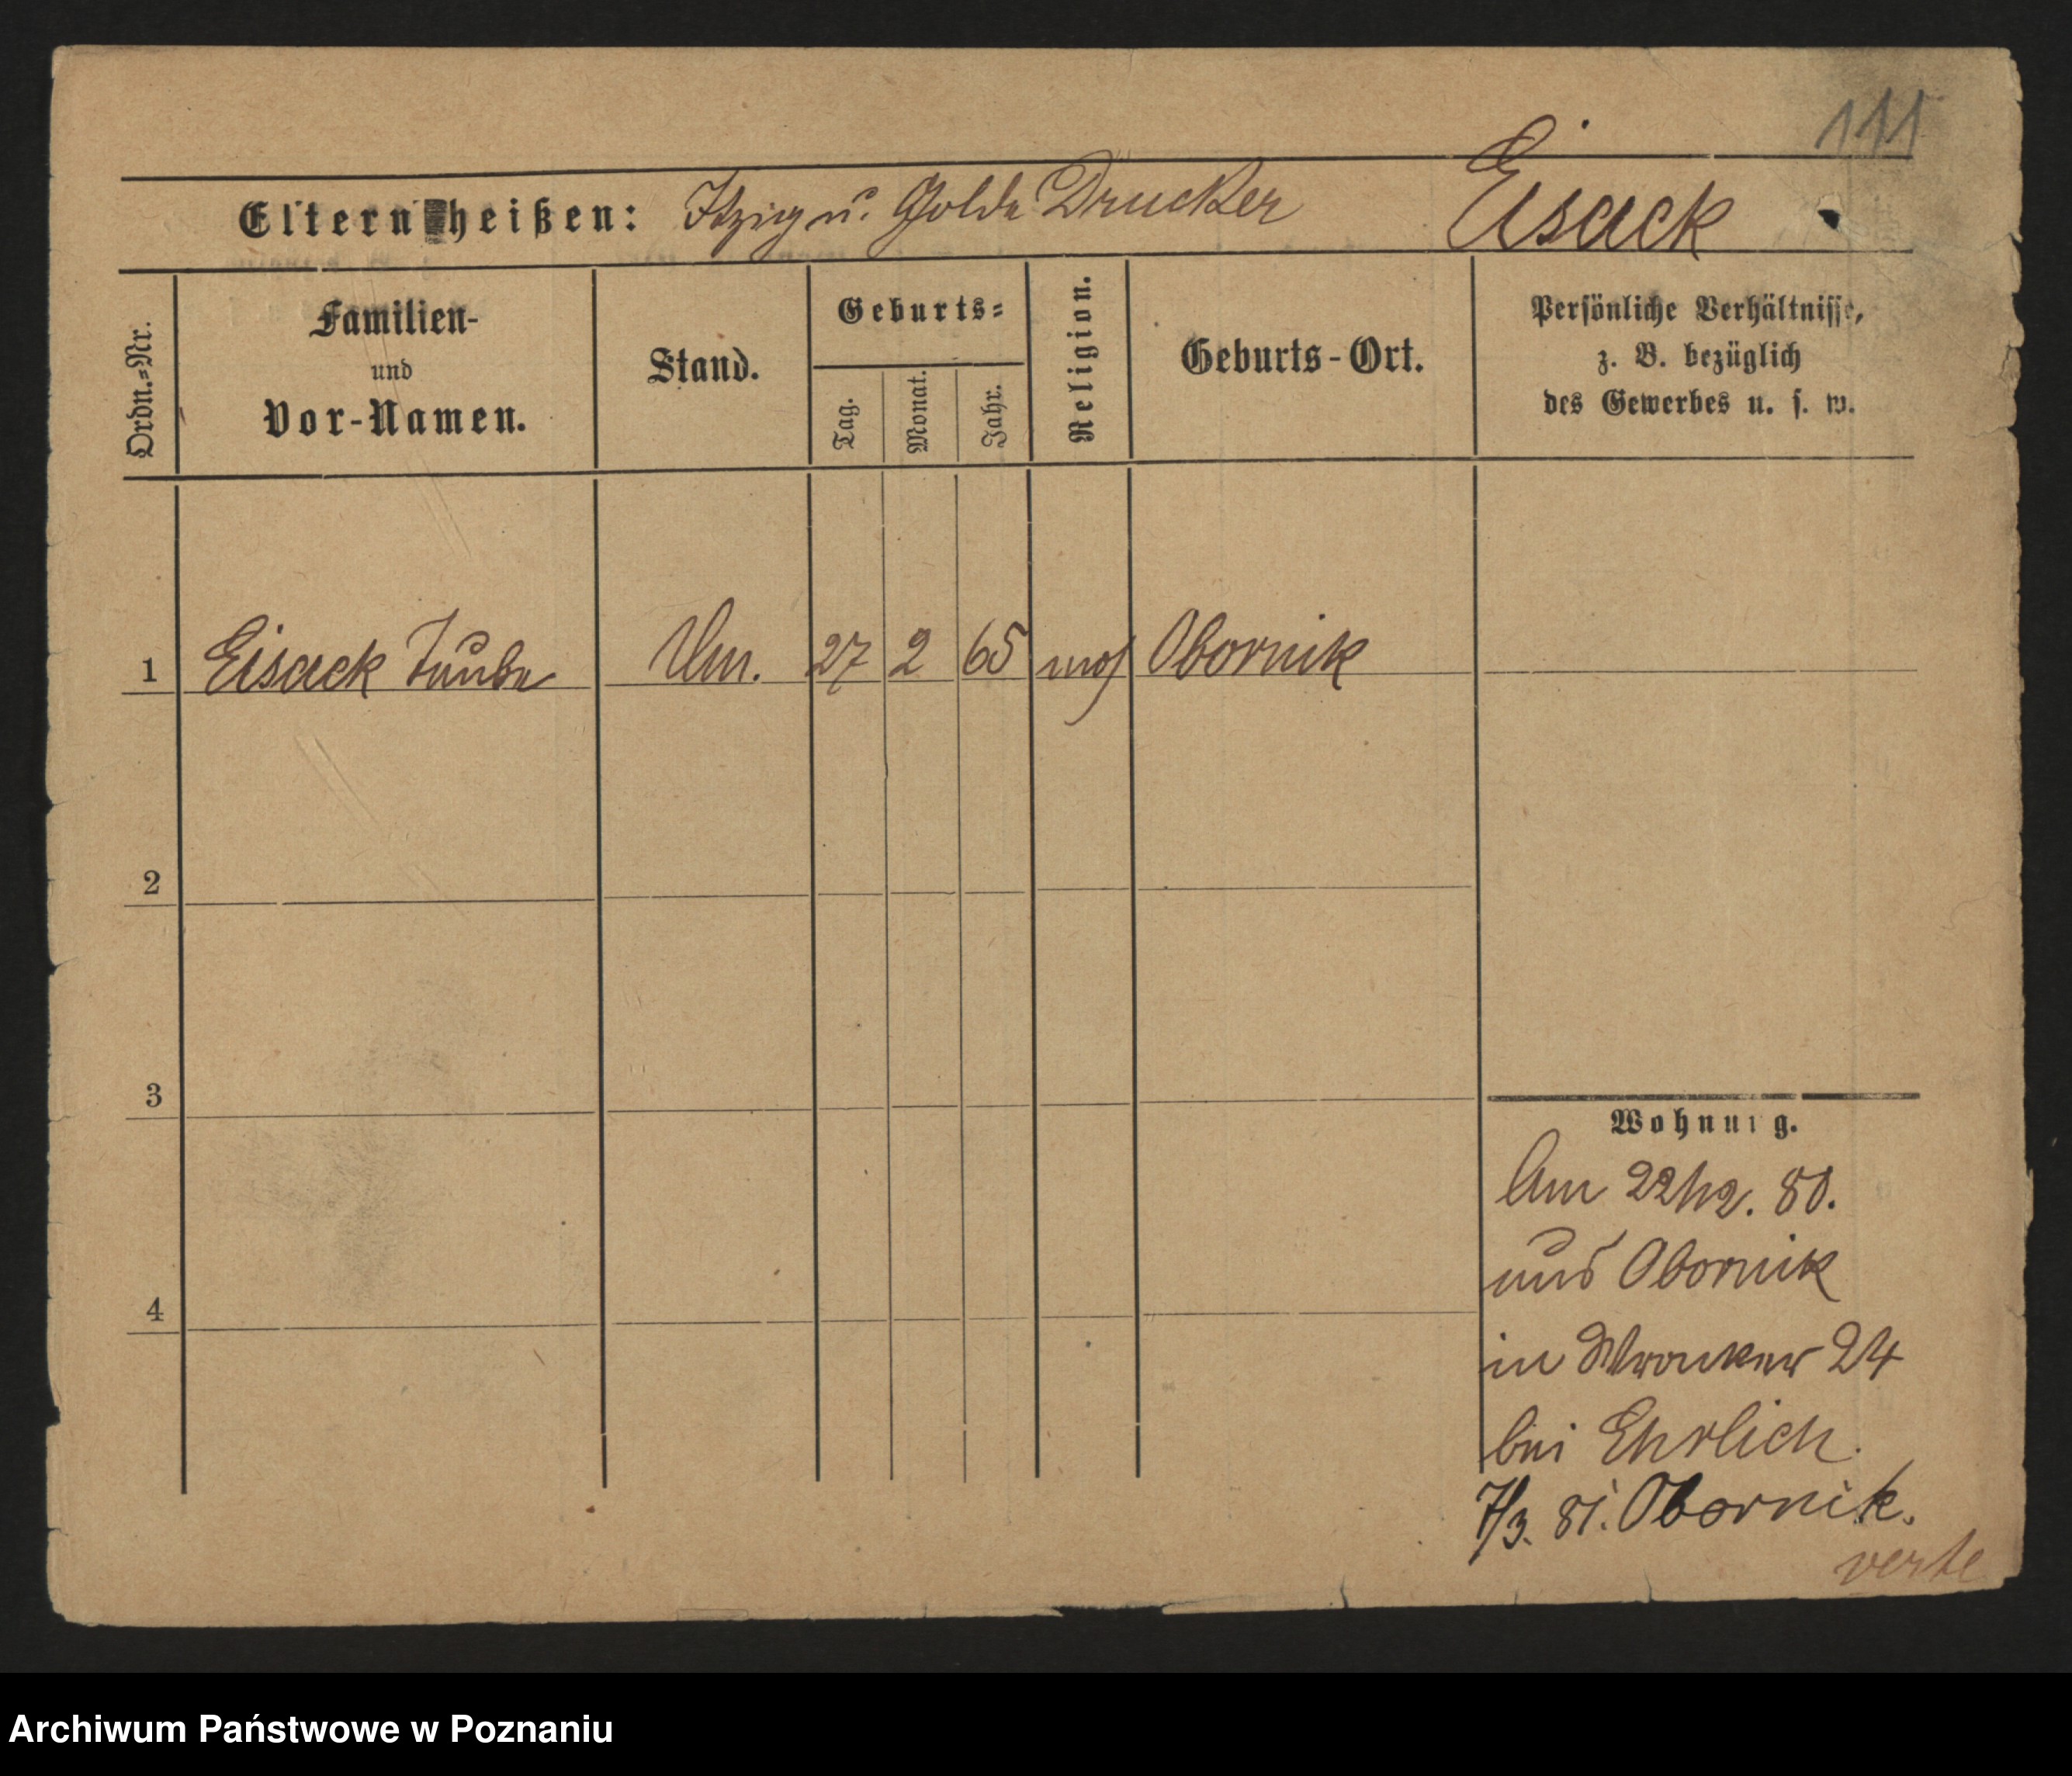 111
Eltern heißen: Itzig u. Golde Drucker Eisack
Ordn.=Nr.
Familien-
und
Vor-Namen.
Stand.
Geburts=
Tag.
Monat.
Jahr.
Religion.
Geburts-Ort.
Persönliche Verhältnisse,
z. B. bezüglich
des Gewerbes u. s. w.
1 Eisack Taube Um. 27 2 65 mos Obornik
2
3
4
Wohnung.
Am 22/12. 80.
aus Obornik
in Wronker 24
bei Ehrlich.
7/3. 81. Obornik.
verte
Archiwum Państwowe w Poznaniu